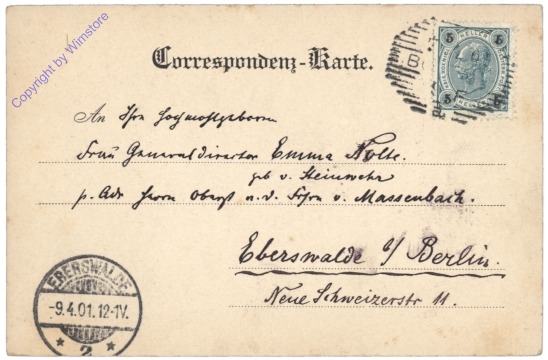 Copyright by Wimstore
Correspondenz-Karte.
5 HELLER 5
An Ihre Hochwohlgeboren
Frau Generaldirector Emma Nolte.
geb v. Steinwehr
p. Adr Herrn Oberst a. D. Frhrn v. Massenbach.
Eberswalde b/ Berlin.
Neue Schweizerstr 11.
EBERSWALDE
-9.4.01.12-1V.
* 2 *